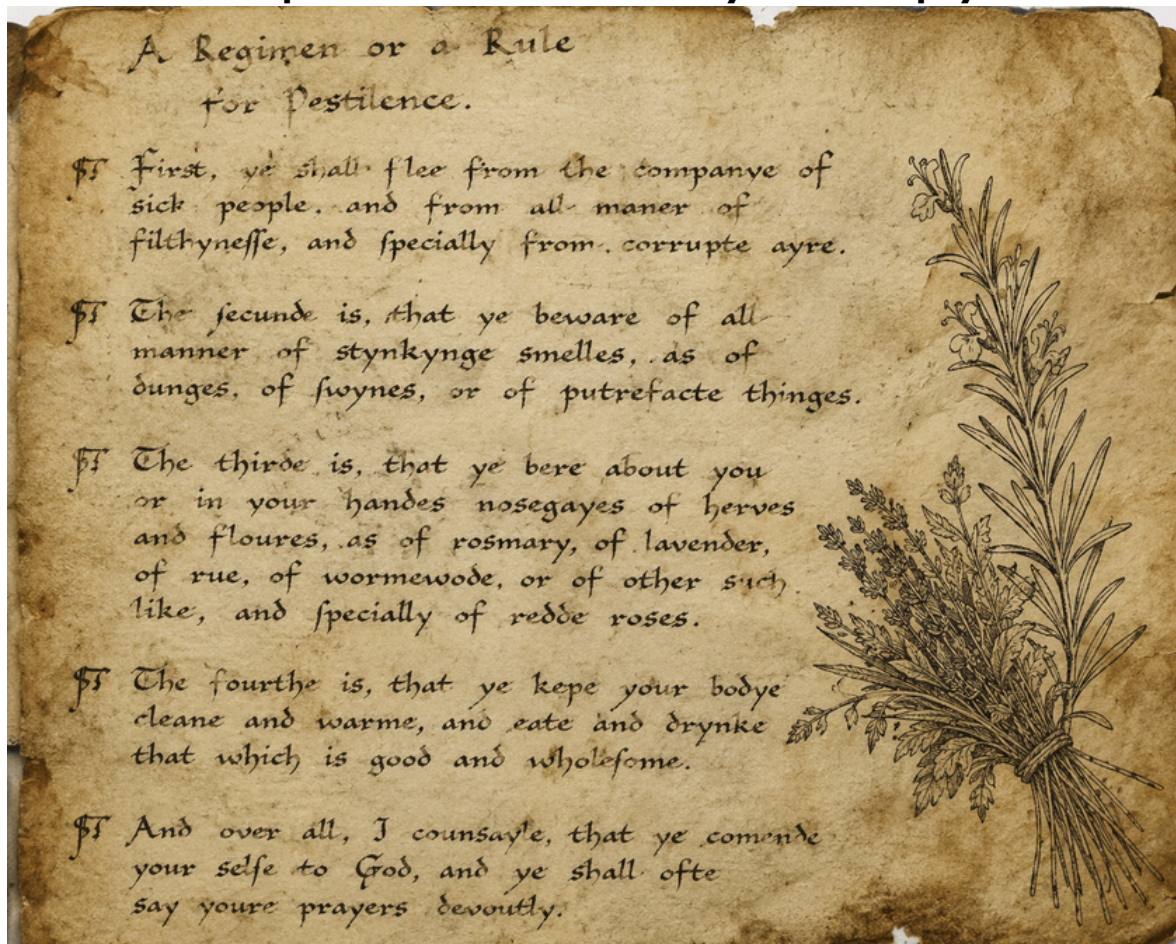 A Regimen or a Rule
for Pestilence.
¶ First, ye shall flee from the companye of
sick people. and from all maner of
filthyneſſe, and ſpecially from. corrupte ayre.
¶ The ſecunde is, that ye beware of all
manner of stynkynge smelles, as of
dunges, of ſwynes, or of putrefacte thinges.
¶ The thirde is, that ye bere about you
or in your handes nosegayes of herves
and floures, as of rosmary, of lavender,
of rue, of wormewode, or of other such
like, and ſpecially of redde roses.
¶ The fourthe is, that ye kepe your bodye
cleane and warme, and eate and drynke
that which is good and wholeſome.
¶ And over all, I counsayle, that ye comende
your selfe to God, and ye shall ofte
say youre prayers devoutly.